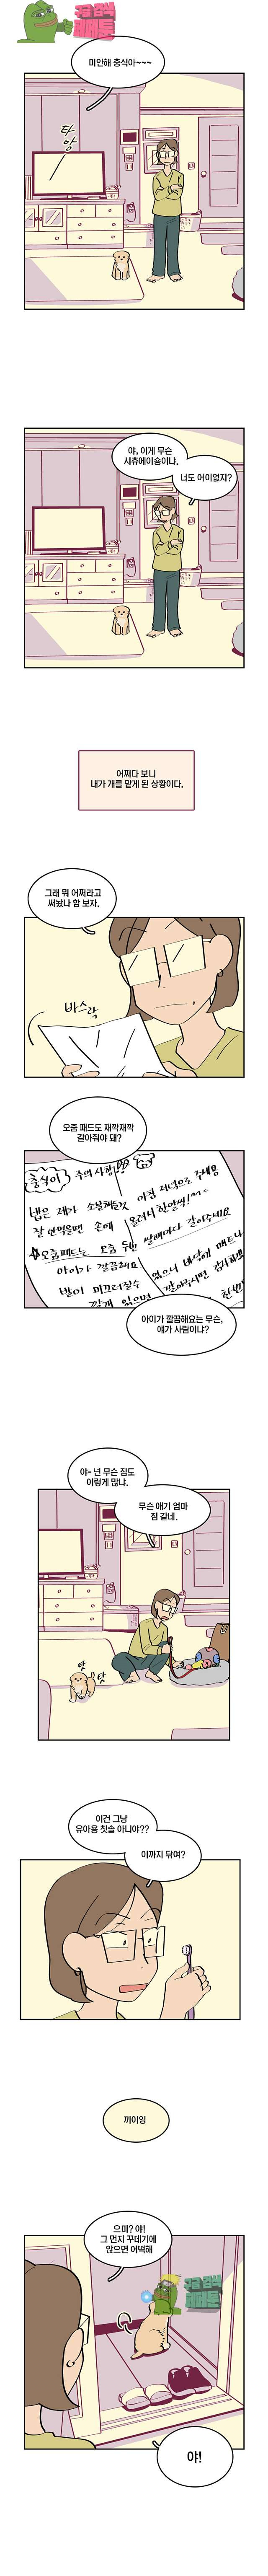 구글 검색
페페툰
미안해 충식아~~~
타
앙
야, 이게 무슨
시츄에이숑이냐.
너도 어이없지?
어쩌다 보니
내가 개를 맡게 된 상황이다.
그래 뭐 어쩌라고
써놨나 함 보자.
바스락
오줌 패드도 재깍재깍
갈아줘야 돼?
충식이 주의사항!!
밥은 제가 소분해둔것 아침 저녁으로 주세요
잘 안먹을땐 손에
오줌패드는 오줌 두번 쌀때마다 갈아주세요
아이가 깔끔해요
발이 미끄러질수
아이가 깔끔해요는 무슨,
얘가 사람이냐?
야- 넌 무슨 짐도
이렇게 많냐.
무슨 애기 엄마
짐 같네.
탓
탓
이건 그냥
유아용 칫솔 아니야??
이까지 닦여?
끼이잉
으미? 야!
그 먼지 꾸데기에
앉으면 어떡해
구글 검색
페페툰
야!